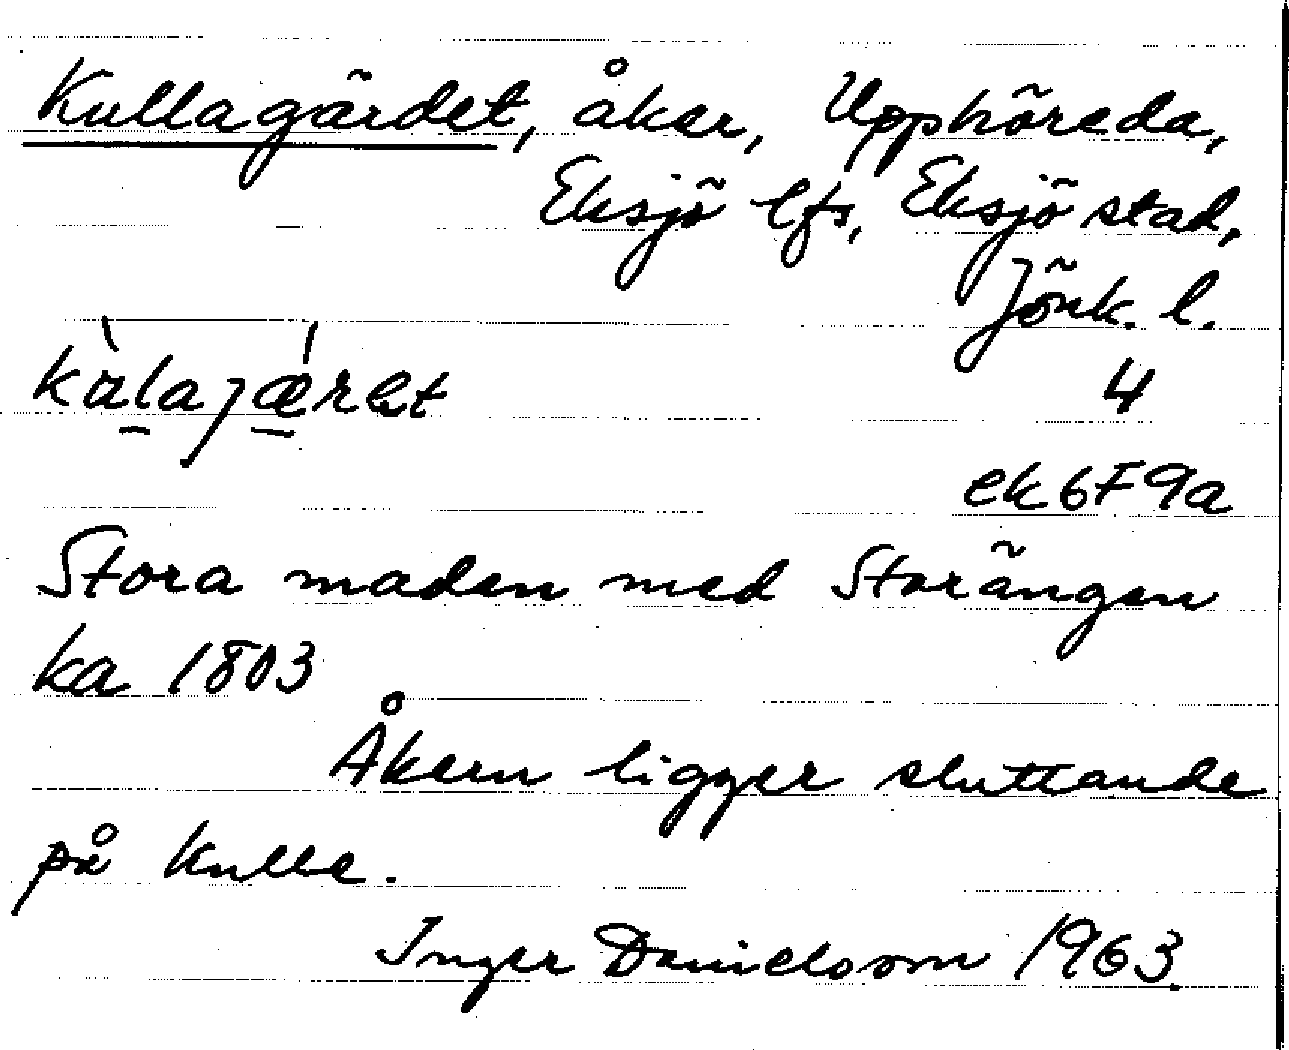 Kullagärdet, åker, Upphöreda,
Eksjö lfs, Eksjö stad,
Jönk. l.
4
ek 6F9a
Stora maden med Storängen
ka 1803
Åkern ligger sluttande
på kulle.
Inger Danielsson 1963.